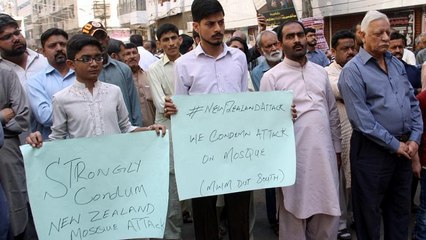 STRONGLY
CONDUM
NEW ZEALAND
MOSQUE ATTACK
#NEWZEALAND ATTACK
WE CONDEMN ATTACK
ON MOSQUE
(MWM DIST SOUTH)